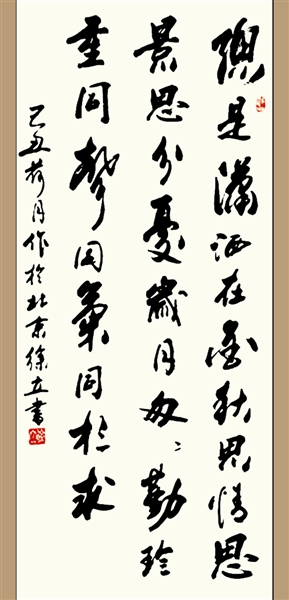 總是瀟洒在金秋思情思
景思分憂歲月匆〻勤珍
重同聲同氣同相求
己丑荷月作於北京徐立書